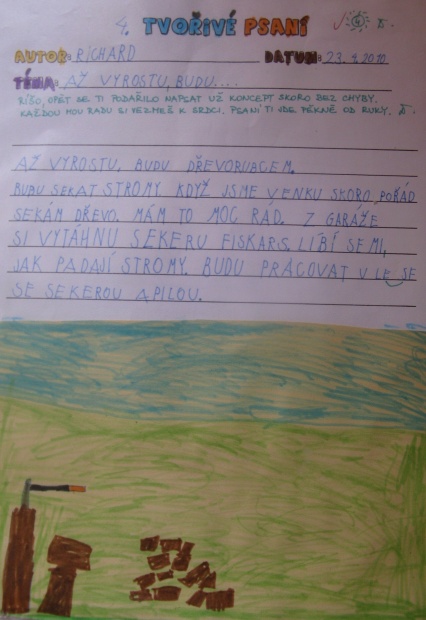 4. TVOŘIVÉ PSANÍ
AUTOR: RICHARD DATUM: 23.9.2010
TÉMA: AŽ VYROSTU, BUDU....
RÍŠO, OPĚT SE TI PODAŘILO NAPSAT UŽ KONCEPT SKORO BEZ CHYBY.
KAŽDOU MOU RADU SI VEZMEŠ K SRDCI. PSANÍ TI JDE PĚKNĚ OD RUKY.
AŽ VYROSTU, BUDU DŘEVORUBCEM.
BUDU SEKAT STROMY. KDYŽ JSME VENKU SKORO POŘÁD
SEKÁM DŘEVO. MÁM TO MOC RÁD. Z GARÁŽE
SI VYTÁHNU SEKERU FISKARS. LÍBÍ SE MI,
JAK PADAJÍ STROMY. BUDU PRACOVAT V LESE
SE SEKEROU A PILOU.